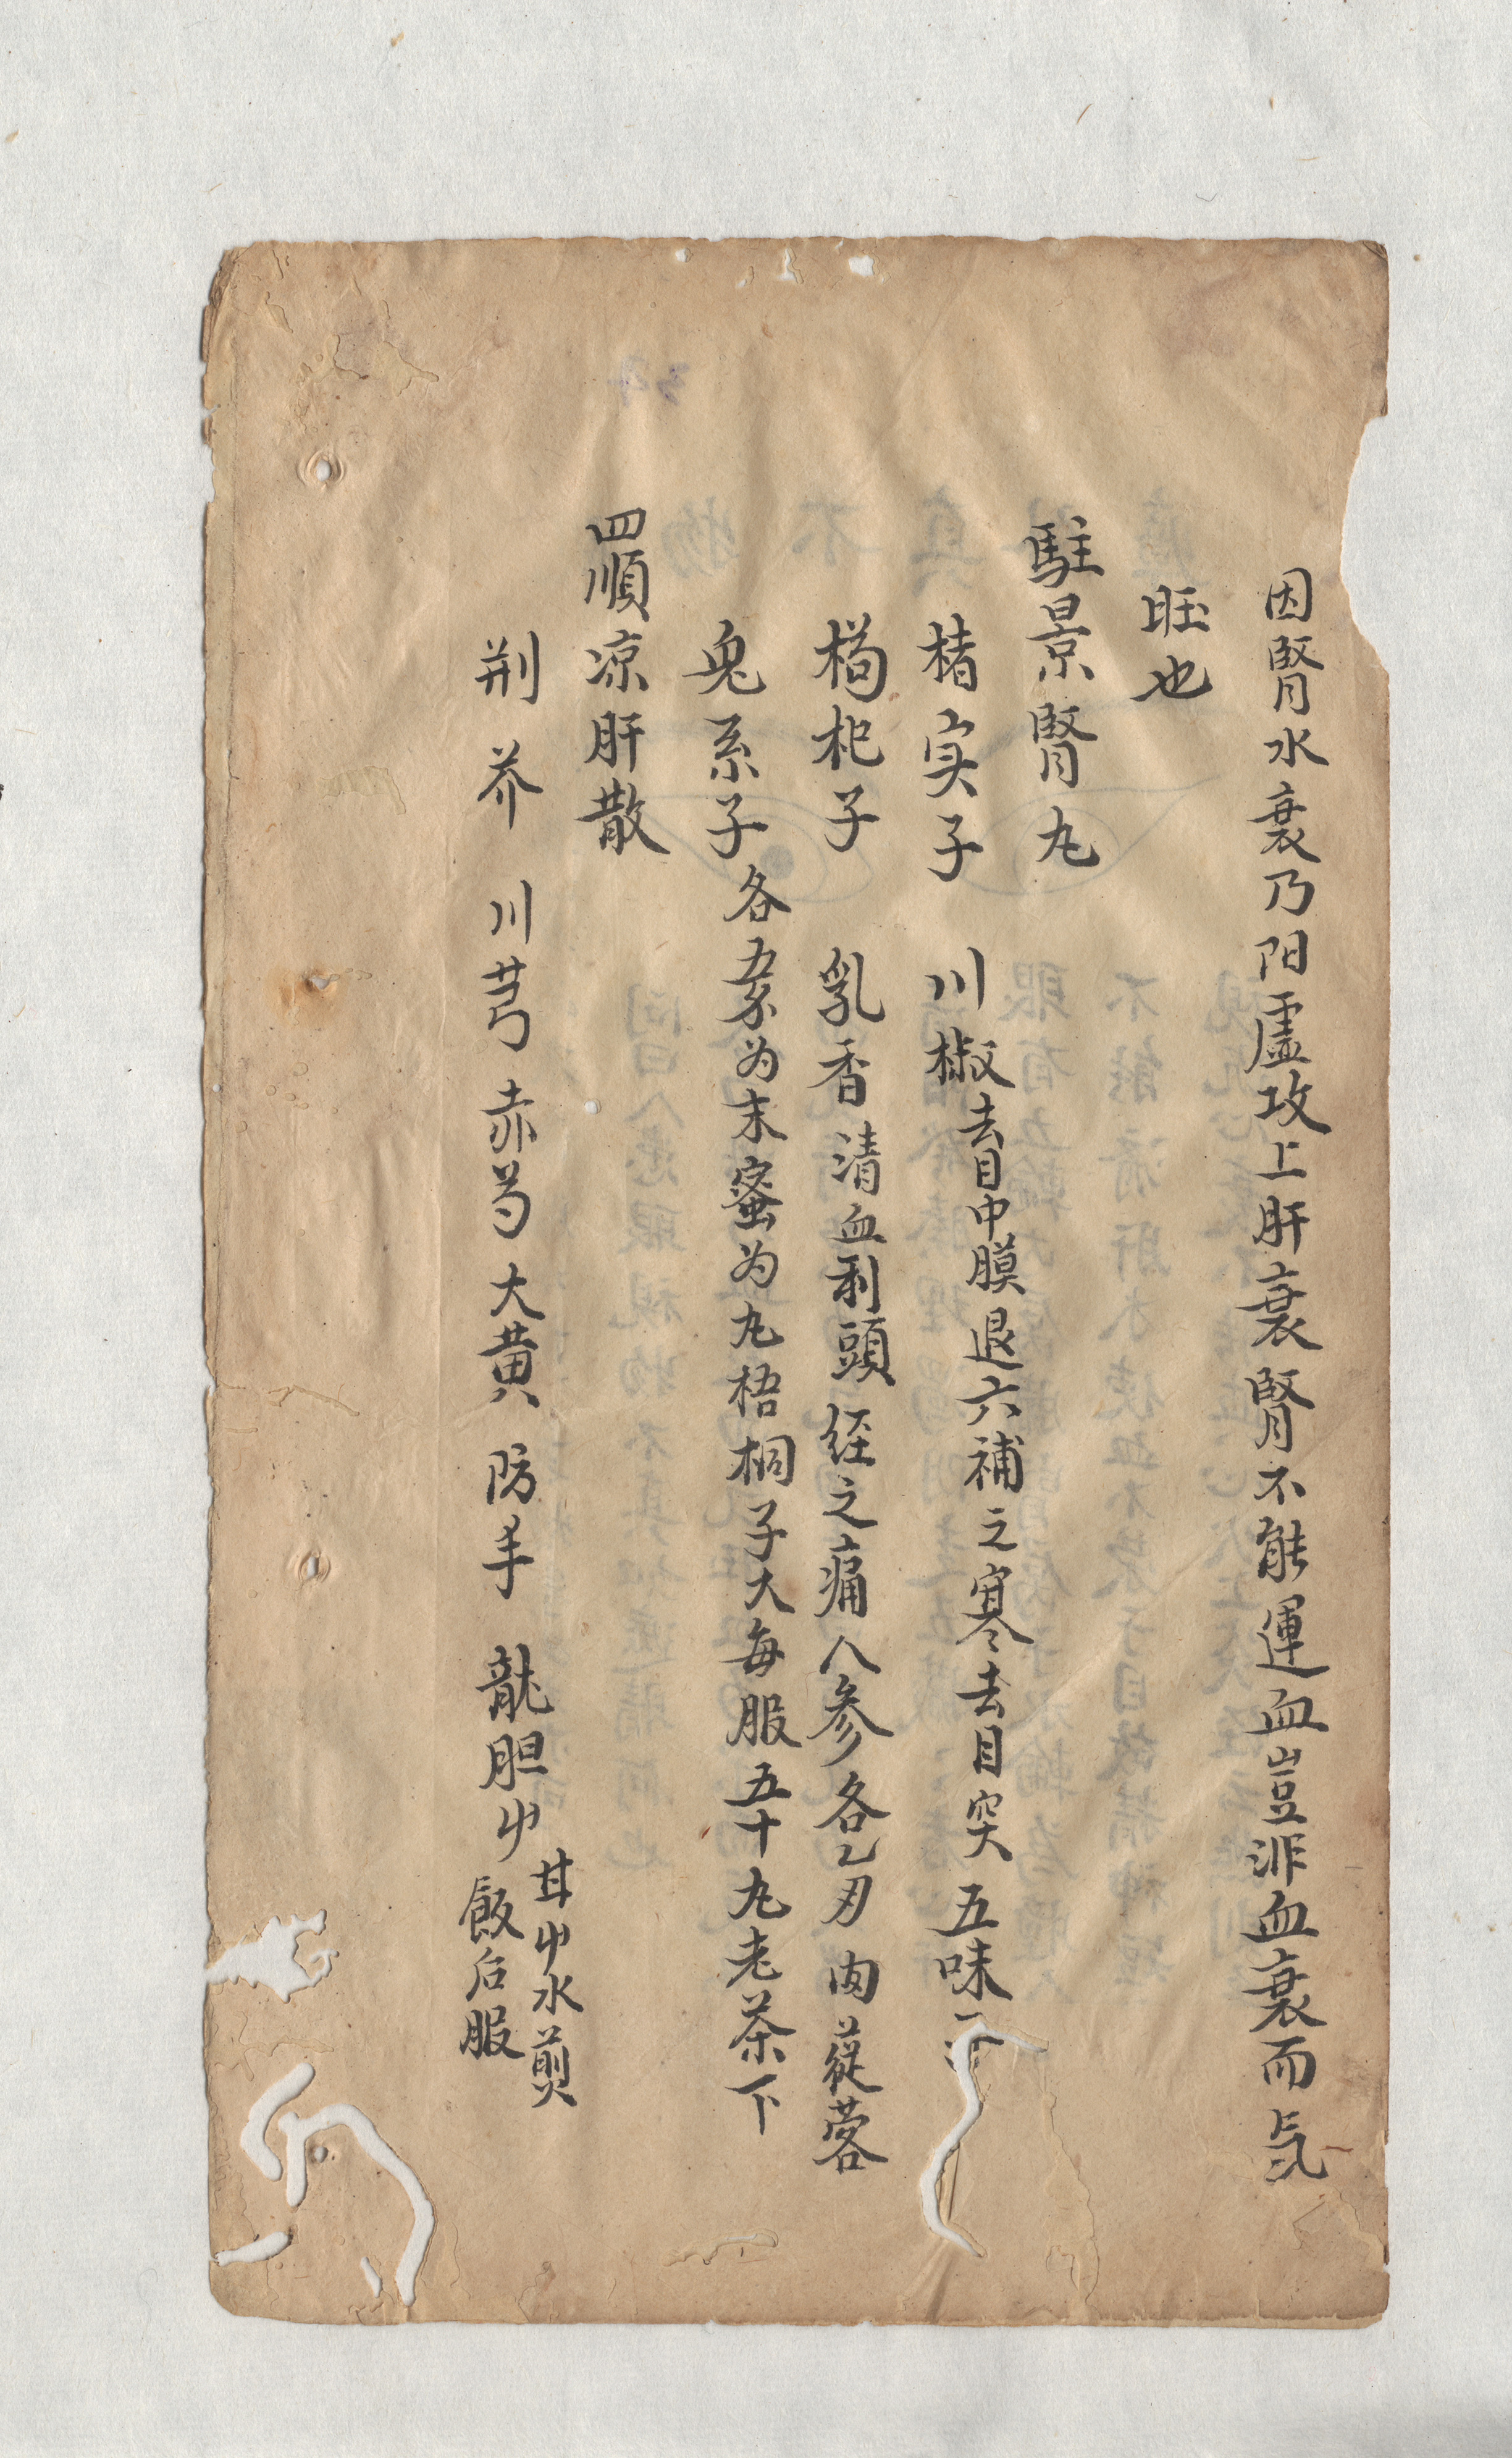 因腎水衰乃阳虛攻上肝衰腎不能運血豈非血衰而気
旺也
駐景腎丸
楮実子 川椒去目中膜退六補之寒去目突 五味
枸杞子 乳香清血利頭経之痛 人参各乙刃 肉蓯蓉
兎糸子各五[]为末蜜为丸梧桐子大每服五十丸老茶下
四順凉肝散
荆芥 川芎 赤芍 大黄 防羊 龍胆屮 甘屮水煎
飯后服